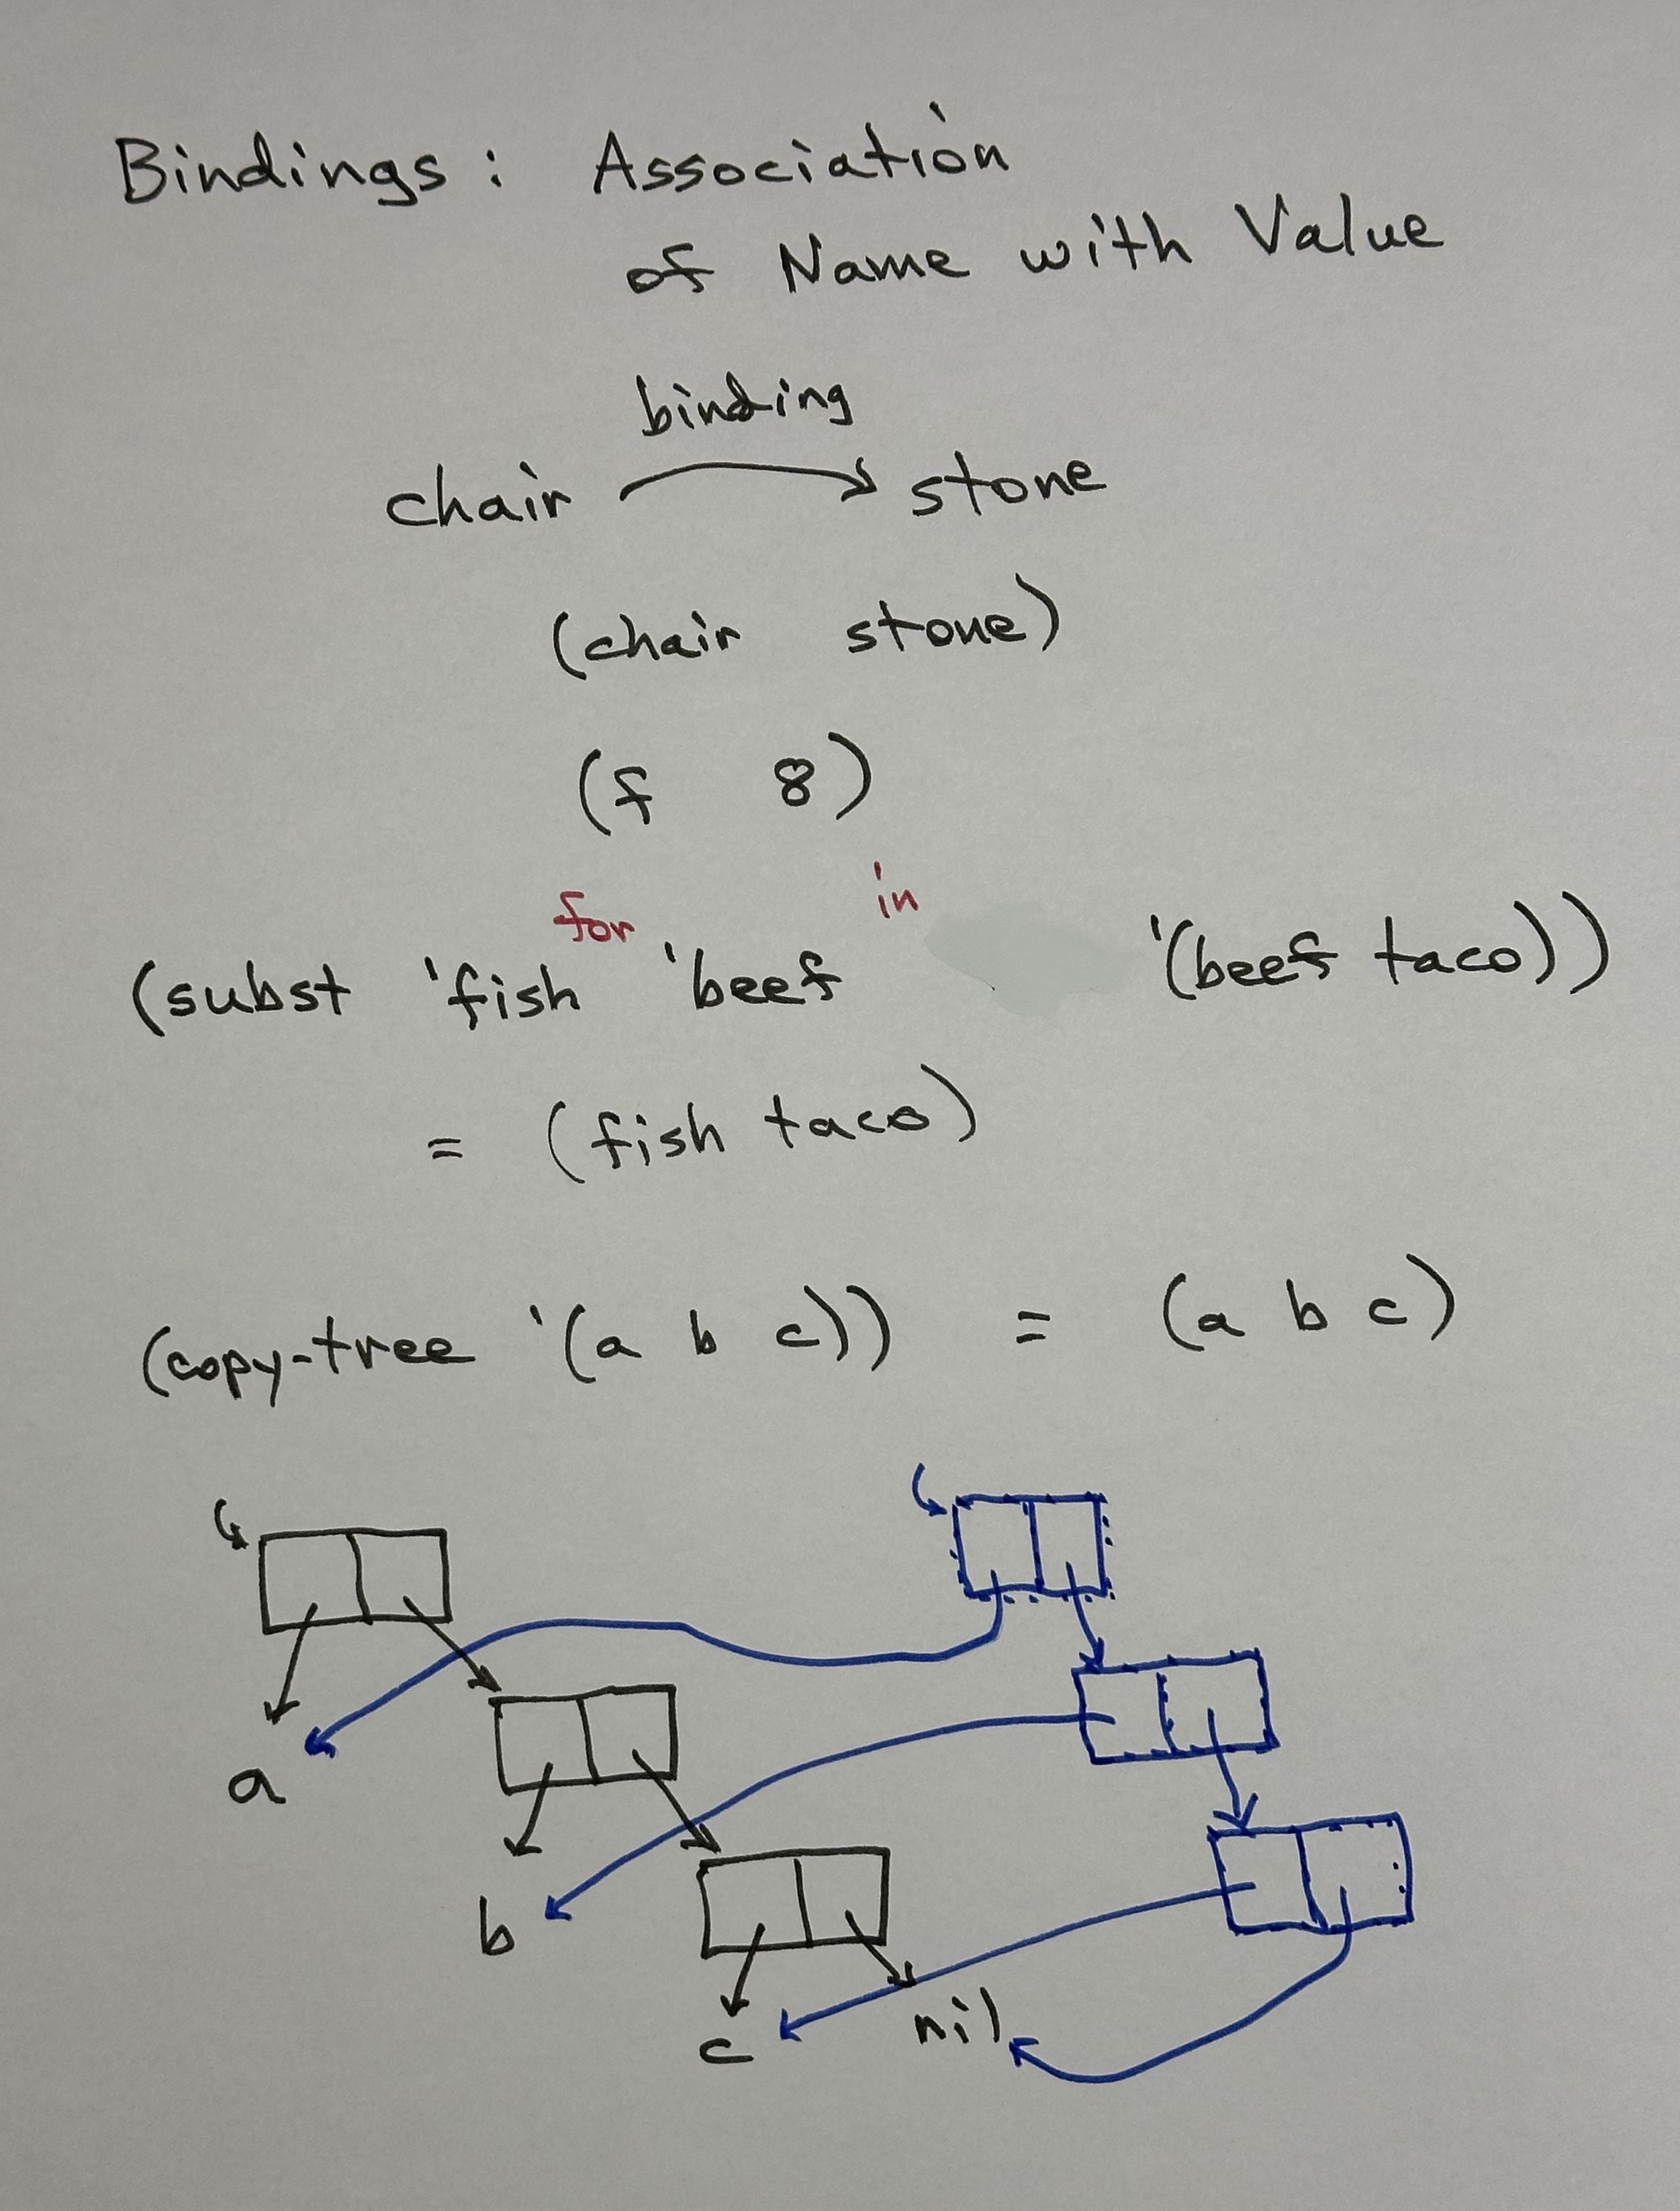 Bindings: Association
of Name with Value
binding
chair stone
(chair stone)
(f 8)
for in
(subst 'fish 'beef '(beef taco))
= (fish taco)
(copy-tree '(a b c)) = (a b c)
a
b
c nil